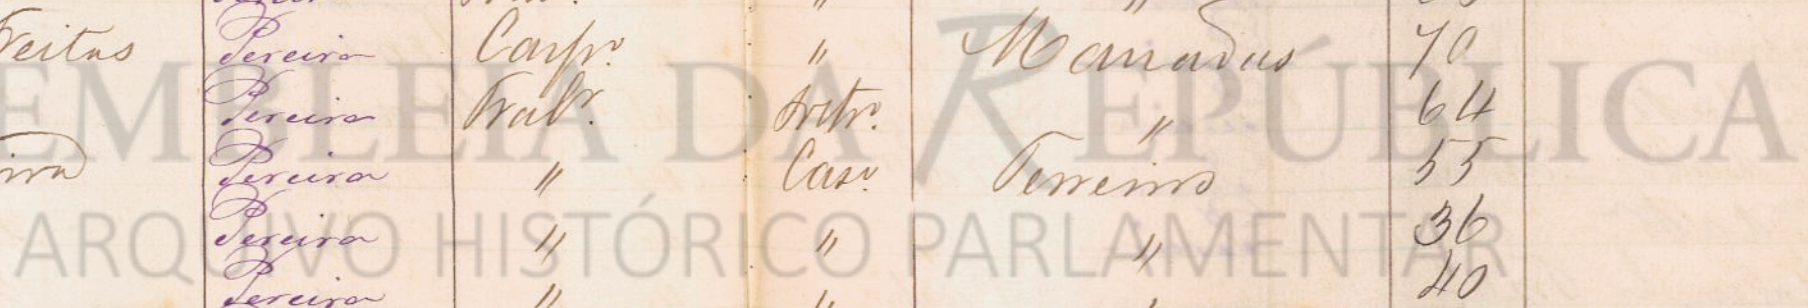 reitas Pereira Carpº. " Manadas 70
Pereira Trabr. Soltrº. " 64
Pereira " Casº. Terreiros 55
Pereira " " " 36
Pereira " " 40
ASSEMBLEIA DA REPÚBLICA
ARQUIVO HISTÓRICO PARLAMENTAR